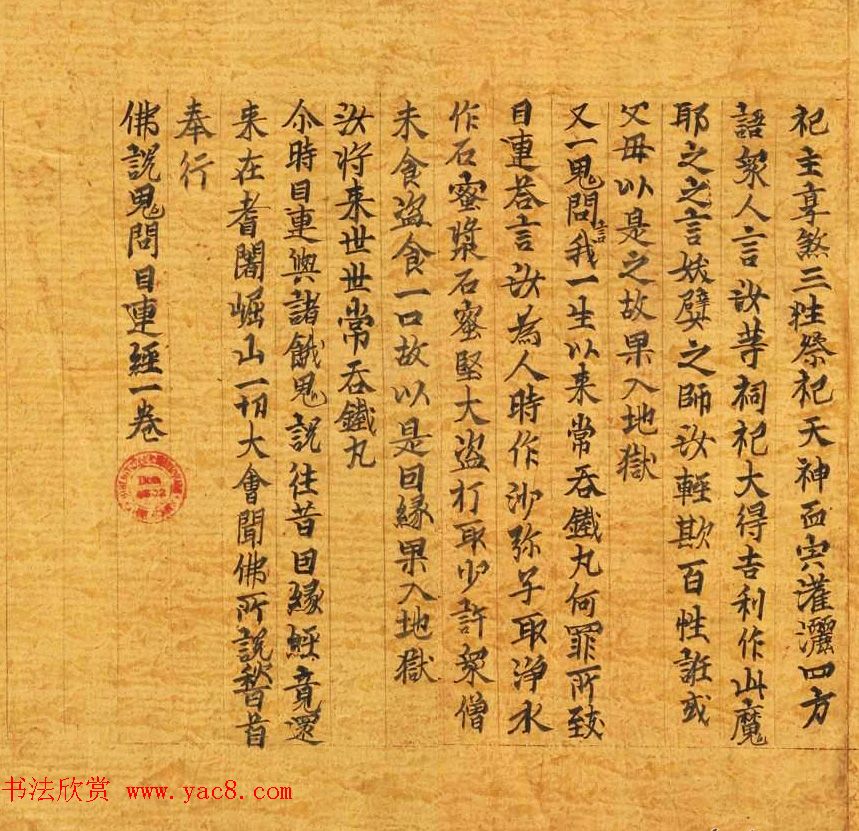 祀主享煞三牲祭祀天神血肉灌灑四方
語衆人言汝等祠祀大得吉利作此魔
耶之之言妖孽之師汝輕欺百性誑或
父毋以是之故果入地獄
又一鬼問言我一生以来常吞鐵丸何罪所致
目連荅言汝為人時作沙弥子取淨水
作石蜜漿石蜜堅大盗打取少許衆僧
未食盗食一口故以是因縁果入地獄
汝將来世世常吞鐵丸
尒時目連與諸餓鬼說往昔因縁經竟還
来在耆闍崛山一切大會聞佛所說稽首
奉行
佛說鬼問目連經一卷
书法欣赏 www.yac8.com